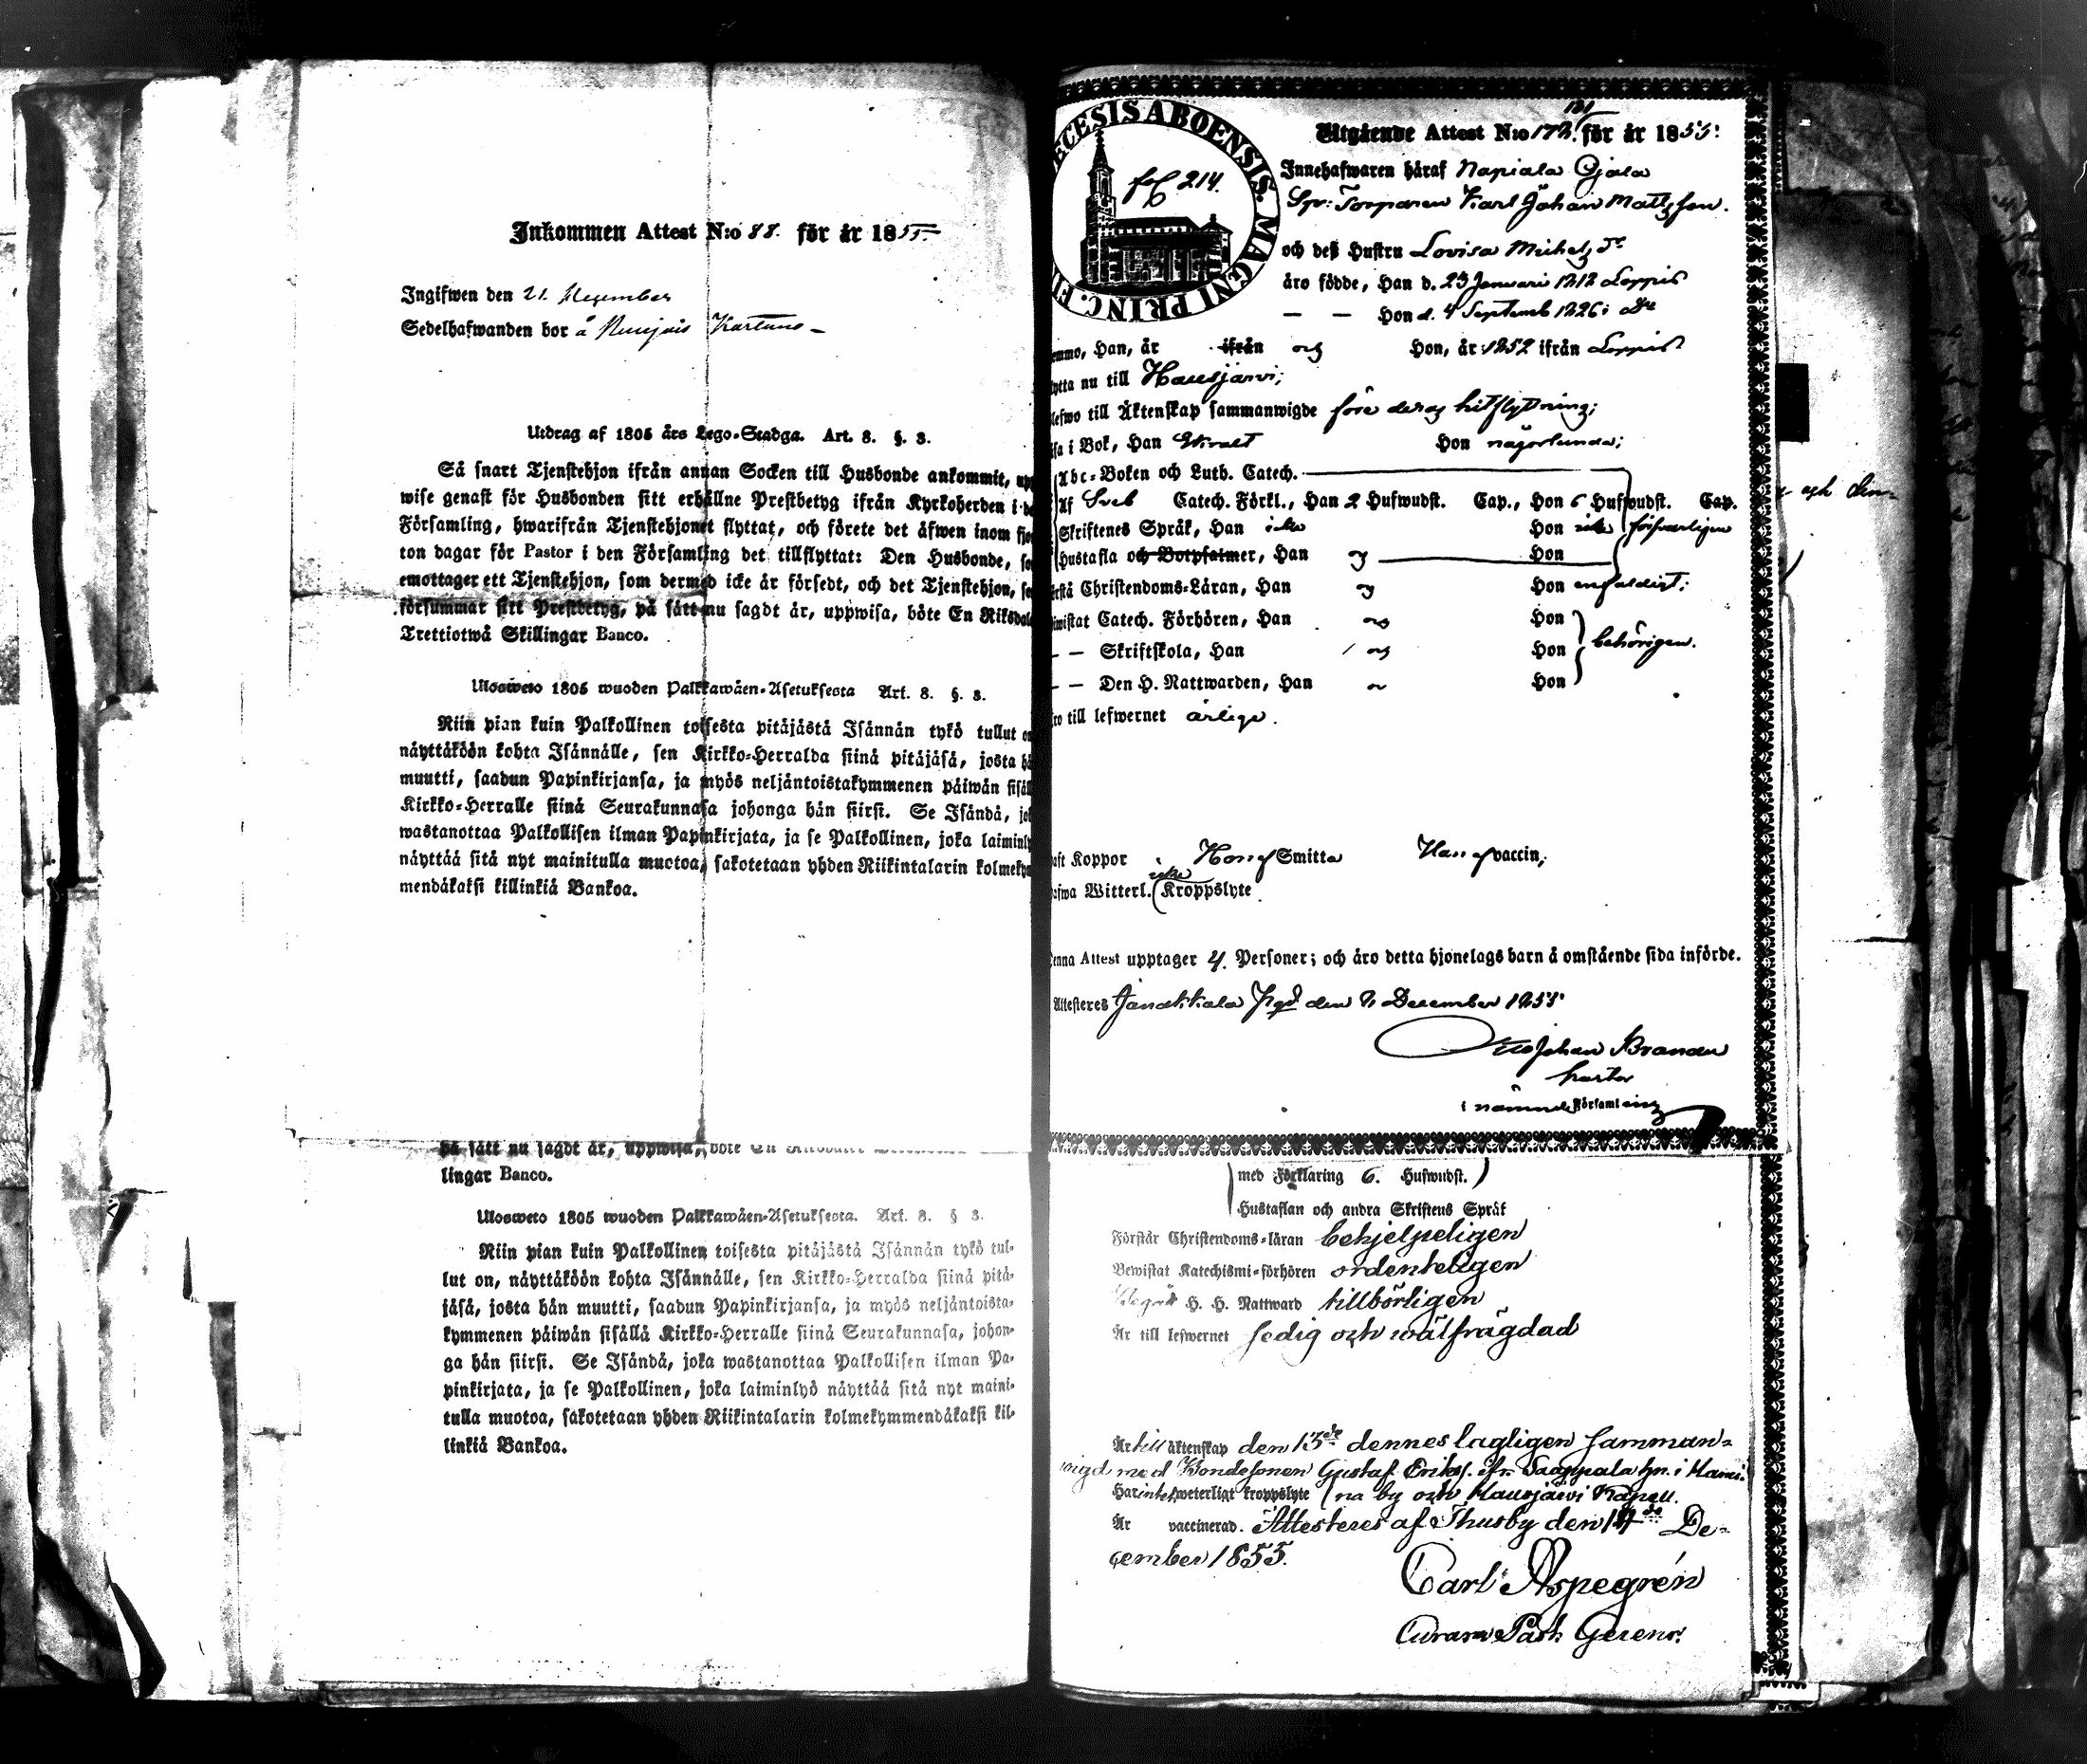 Inkommen Attest N:o 88. för år 1855.
Ingifwen den 21. December
Sedelhafwanden bor å
Utdrag af 1805 års Lego-Stadga. Art. 8. §. 3.
Så snart Tjenstehjon ifrån annan Socken till Husbonde ankommit, upp
wise genast för Husbonden sitt erhållne Prestbetyg ifrån Kyrkoherden i de
Församling, hwarifrån Tjenstehjonet flyttat, och förete det äfwen inom fjor
ton dagar för Pastor i den Församling det tillflyttat: Den Husbonde, so
emottager ett Tjenstehjon, som dermed icke är försedt, och det Tjenstehjon, so
försummar sitt Prestbetyg, på sätt nu sagdt är, uppwisa, böte En Riksdal
Trettiotwå Skillingar Banco.
Ulosweto 1805 wuoden Palkkawäen-Asetuksesta Art. 8. §. 3.
Niin pian kuin Palkollinen toisesta pitäjästä Isännän tykö tullut on
näyttäköön kohta Isännälle, sen Kirkko-Herralda siinä pitäjäsä, josta hä
muutti, saadun Papinkirjansa, ja myös neljäntoistakymmenen päiwän sisäll
Kirkko-Herralle siinä Seurakunnasa johonga hän siirsi. Se Isändä, jok
wastanottaa Palkollisen ilman Papinkirjata, ja se Palkollinen, joka laiminly
näyttää sitä nyt mainitulla muotoa, sakotetaan yhden Riikintalarin kolmekym
mendäkaksi killinkiä Bankoa.
på sätt nu sagdt är, uppwisa, böte En
lingar Banco.
Ulosweto 1805 wuoden Palkkawäen-Asetuksesta. Art. 8. § 3.
Niin pian kuin Palkollinen toisesta pitäjästä Isännän tykö tul-
lut on, näyttäköön kohta Isännälle, sen Kirkko-Herralda siinä pitä-
jäsä, josta hän muutti, saadun Papinkirjansa, ja myös neljäntoista-
kymmenen päiwän sisällä Kirkko-Herralle siinä Seurakunnasa, johon-
ga hän siirsi. Se Isändä, joka wastanottaa Palkollisen ilman Pa-
pinkirjata, ja se Palkollinen, joka laiminlyö näyttää sitä nyt maini-
tulla muotoa, sakotetaan yhden Riikintalarin kolmekymmendäkaksi kil-
linkiä Bankoa.
ECESIS ABOENSIS. MAGNI PRINC. FI
fol 214.
Utgående Attest N:o 172. för år 1855.
Innehafwaren häraf Napiala Ojala
Sp: Torparen Karl Johan Mattsson.
och deß Hustru Lovisa Michels dr
äro födde, Han d. 23 Januari 1812 Loppis
— — Hon d. 4 Septemb 1826 i Do
emmo, Han, år ifrån och Hon, år 1852 ifrån Loppis
lytta nu till Hausjärwi;
lefwo till Äktenskap sammanwigde före deras hitflyttning;
sa i Bok, Han Hon någorlunda;
Abc-Boken och Luth. Catech.
Af Sveb Catech. Förkl., Han 2 Hufwudst. Cap., Hon 6 Hufwudst. Cap.
Skriftenes Språk, Han icke Hon icke förswarligen
Hustafla och Botpsalmer, Han och Hon
rstå Christendoms-Läran, Han och Hon enfaldigt;
iwistat Catech. Förhören, Han och Hon
— — Skriftskola, Han och Hon behörigen.
— — Den H. Nattwarden, Han Hon
ro till lefwernet ärlige.
aft Koppor Hon af Smitta Han af vaccin,
afwa Witterl. icke Kroppslyte
enna Attest upptager 4. Personer; och äro detta hjonelags barn å omstående sida införde.
Attesteres Janakkala Pgd den December 1855
Johan Brander
Pastor
i nämnde Församling
med Förklaring 6. Hufwudst.
Hustaflan och andra Skriftens Språk
Förstår Christendoms-läran behjelpeligen
Bewistat Katechismi-förhören ordenteligen
Begått H. H. Nattward tillbörligen
Är till lefwernet sedig och wälfrägdad
Är till äktenskap den 13de dennes lagligen samman-
wigd med Bondesonen Gustaf Eriks. ifr. Saappala hn. i
Har intet weterligt kroppslyte na by och Hausjärwi Kapell.
Är vaccinerad. Attesteras af Thusby den 14de De-
cember 1855.
Carl Aspegrén
Past. Gerens.